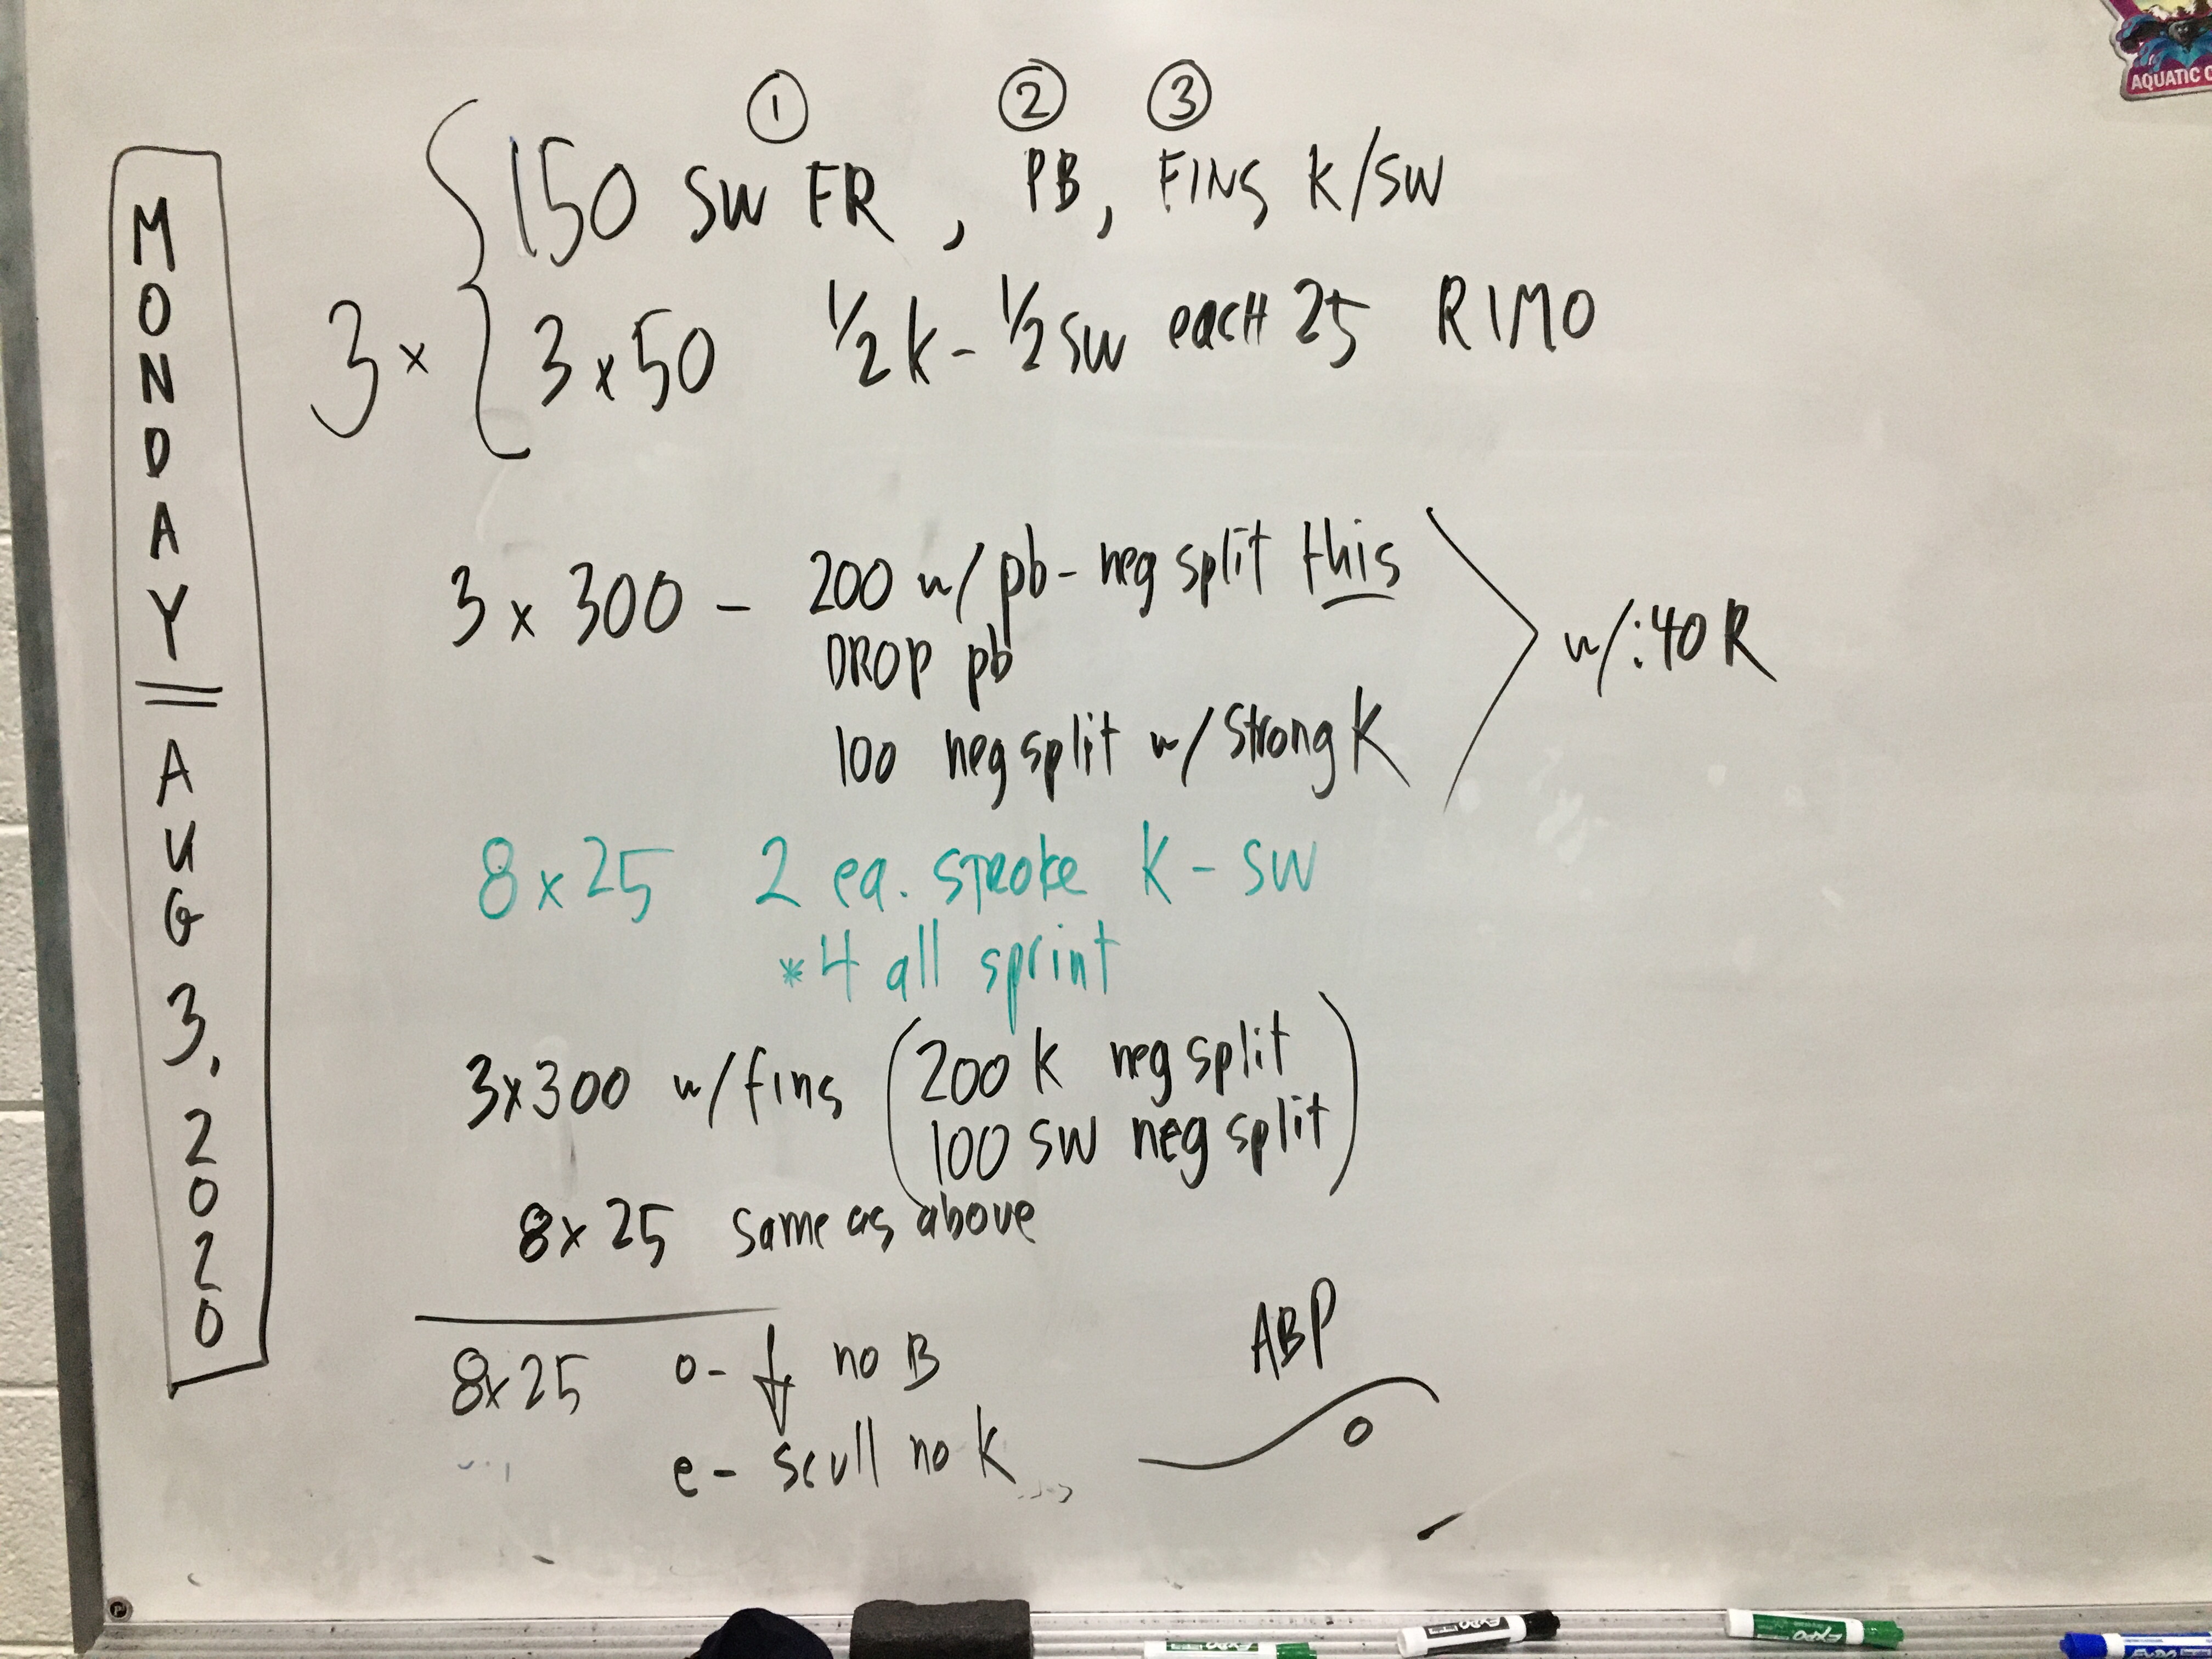 MONDAY = AUG 3, 2020
① ② ③
150 SW FR, PB, FINS K/SW
3 x { 3 x 50 ½ K - ½ SW eacH 25 RIMO
3 x 300 - 200 w/ pb - neg split this
DROP pb
w/ :40 R
100 neg split w/ Strong K
8 x 25 2 ea. STROKE K - SW
*4 all sprint
3x300 w/ fins (200 K neg split
100 SW neg split)
8x 25 Same as above
8x25 o- no B
e- scull no K
ABP
AQUATIC
EXPO
EXPO
EXPO
EXPO